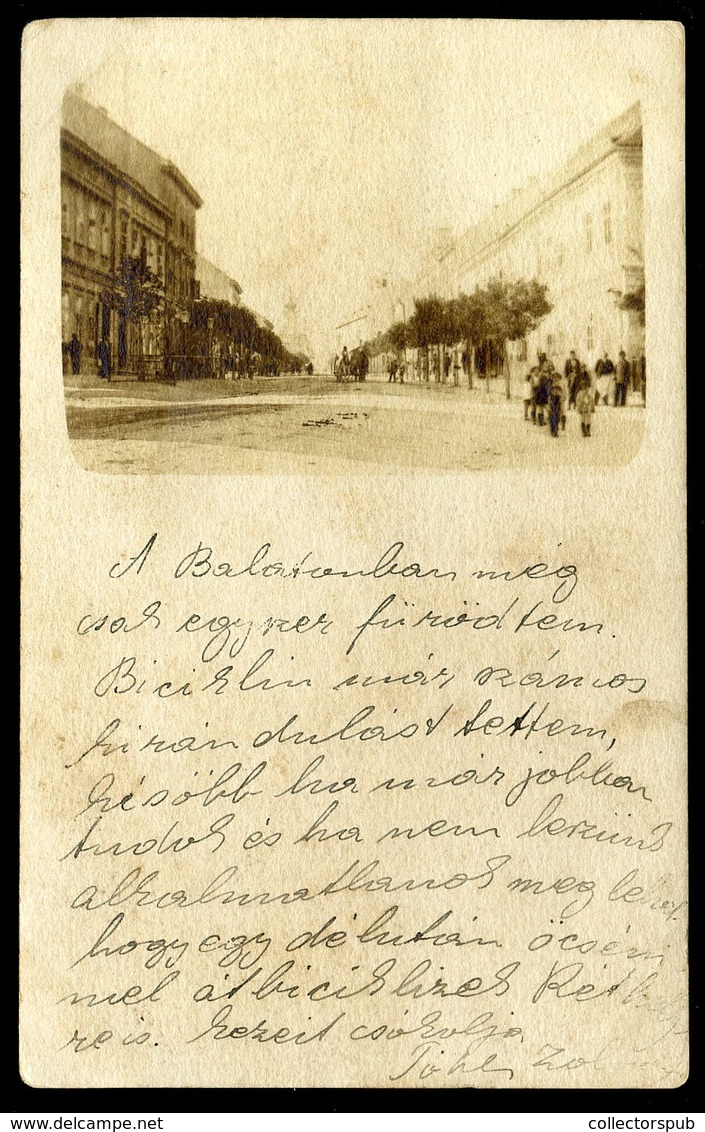 A Balatonban még
csak egyszer fürödtem.
Biciklin már számos
kirándulást tettem,
később ha már jobban
tudok és ha nem leszünk
alkalmatlanok meg lehet
hogy egy délután öcsém
mel átbiciklizek
re is. kezeit csókolja
collectorspub